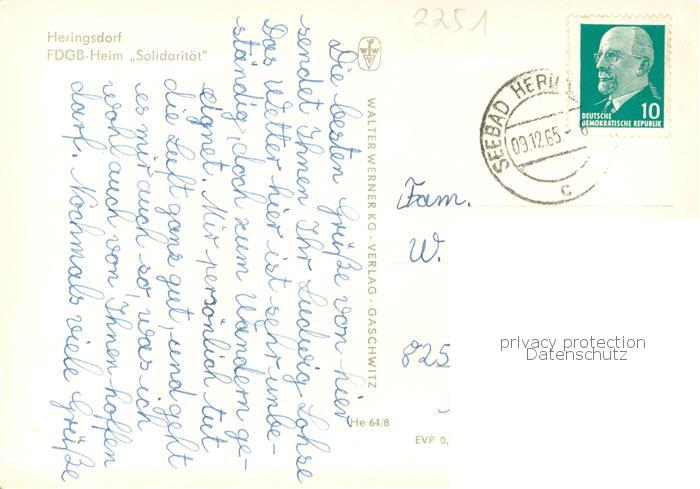 2251
Heringsdorf
FDGB-Heim „Solidarität"
Die besten Grüße von hier
sendet Ihnen Ihr Ludwig Lohse
Das Wetter hier ist sehr unbe-
ständig, doch zum Wandern ge-
eignet. Mir persönlich tut
die Luft ganz gut, und geht
es mir auch so, was ich
wohl auch von Ihnen hoffen
darf. Nochmals viele Grüße
WALTER WERNER KG · VERLAG · GASCHWITZ
He 64/8
EVP 0,
10
DEUTSCHE
DEMOKRATISCHE REPUBLIK
SEEBAD HERIN
09.12.65.
c
Fam.
W.
825
privacy protection
Datenschutz